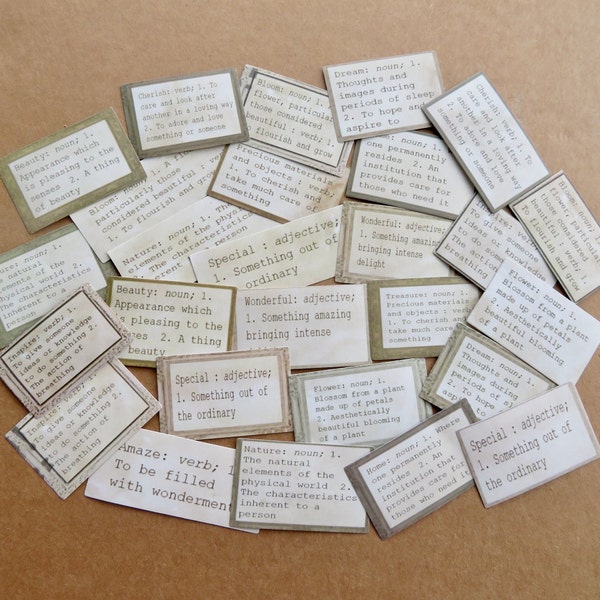 Dream: noun; 1.
Thoughts and
images during
periods of sleep
2. To hope and
aspire to
Cherish: verb; 1. To
care and look after
another in a loving way
2. To adore and love
something or someone
Bloom: noun; 1.
flower, particular
those considered
beautiful : verb;
flourish and grow
Cherish: verb; 1. To
care and look after
another in a loving way
2. To adore and love
something or someone
Beauty: noun; 1.
Appearance which
is pleasing to the
senses 2. A thing
of beauty
Bloom: noun; 1.
particularly those
considered beautiful
1. To flourish and
Precious materials
and objects : verb;
1. To cherish and
take much care of
something
one permanently
resides 2. An
institution that
provides care for
those who need it
Bloom: noun;
flower,
those considered
beautiful
flourish and grow
Nature: noun; 1.
elements of the phys
2. The characteristics
person
Special : adjective;
1. Something out of
the ordinary
Wonderful: adjective;
1. Something amazing
bringing intense
delight
To give someone
ideas or knowledge
to do something 2.
The action of
breathing
Nature: noun; 1.
The natural
elements of the
physical world 2.
The characteristics
inherent to a
person
Flower: noun; 1.
Blossom from a plant
made up of petals
2. Aesthetically
beautiful blooming
of a plant
Beauty: noun; 1.
Appearance which
is pleasing to the
senses 2. A thing
of beauty
Wonderful: adjective;
1. Something amazing
bringing intense
Treasure: noun; 1.
Precious materials
and objects : verb;
1. To cherish and
take much care of
something
Inspire: verb; 1.
To give someone
ideas or knowledge
to do something 2.
The action of
breathing
Dream: noun; 1.
Thoughts and
images during
periods of sleep
2. To hope and
aspire to
Special : adjective;
1. Something out of
the ordinary
Flower: noun; 1.
Blossom from a plant
made up of petals
2. Aesthetically
beautiful blooming
of a plant
Inspire: verb; 1.
To give someone
ideas or knowledge
to do something 2.
The action of
breathing
Amaze: verb;
To be filled
with wonderment
Nature: noun; 1.
The natural
elements of the
physical world 2.
The characteristics
inherent to a
person
Home: noun; 1. Where
one permanently
resides 2. An
institution that
provides care for
those who need it
Special : adjective;
1. Something out of
the ordinary